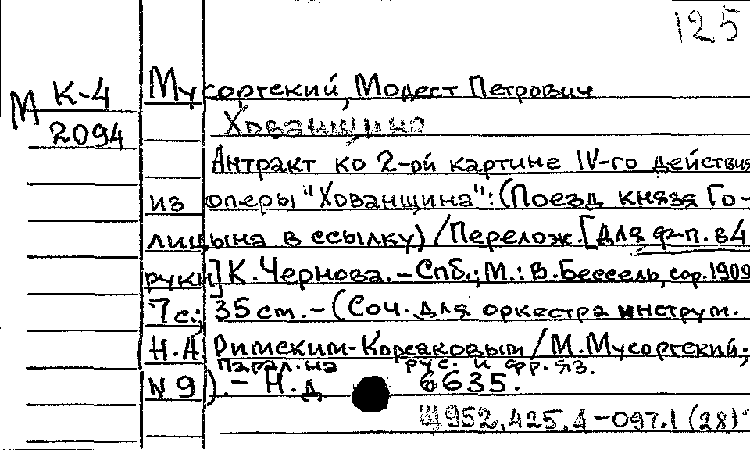 125
М К-4
2094
Мусоргский, Модест Петрович
Хованщина
Антракт ко 2-ой картине IV-го действия
из оперы "Хованщина": (Поезд князя Го-
лицына в ссылку) / Перелож. [для ф-п. в 4
руки] К. Чернова. - Спб.; М.: В. Бессель, сор. 1909
7 с.; 35 см. - (Соч. для оркестра инструм.
Н.А. Римским-Корсаковым / М. Мусоргский;
Парал. на рус. и фр. яз.
N 9). - Н.д. 6635.
Щ952.425.4-097.1(28)